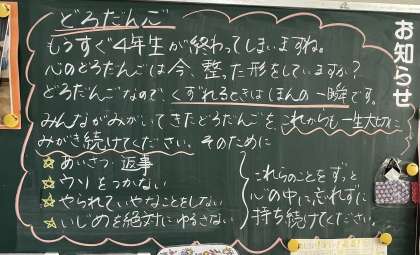 お知らせ
どろだんご
もうすぐ4年生が終わってしまいますね。
心のどろだんごは今、整った形をしていますか?
どろだんごなので、くずれるときはほんの一瞬です。
みんながみがいてきたどろだんごを、これからも一生大切に
みがき続けてください。そのために
☆あいさつ・返事
☆ウソをつかない
☆やられていやなことをしない
☆いじめを絶対にゆるさない
これらのことをずっと
心の中に忘れずに
持ち続けてください。